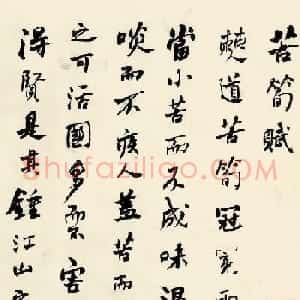 苦筍賦
僰道苦筍冠冕兩
當小苦而反成味溫
啖而不疾人蓋苦而
之可活國多而不害
得賢是其鍾江山之
Shufaziliao.com